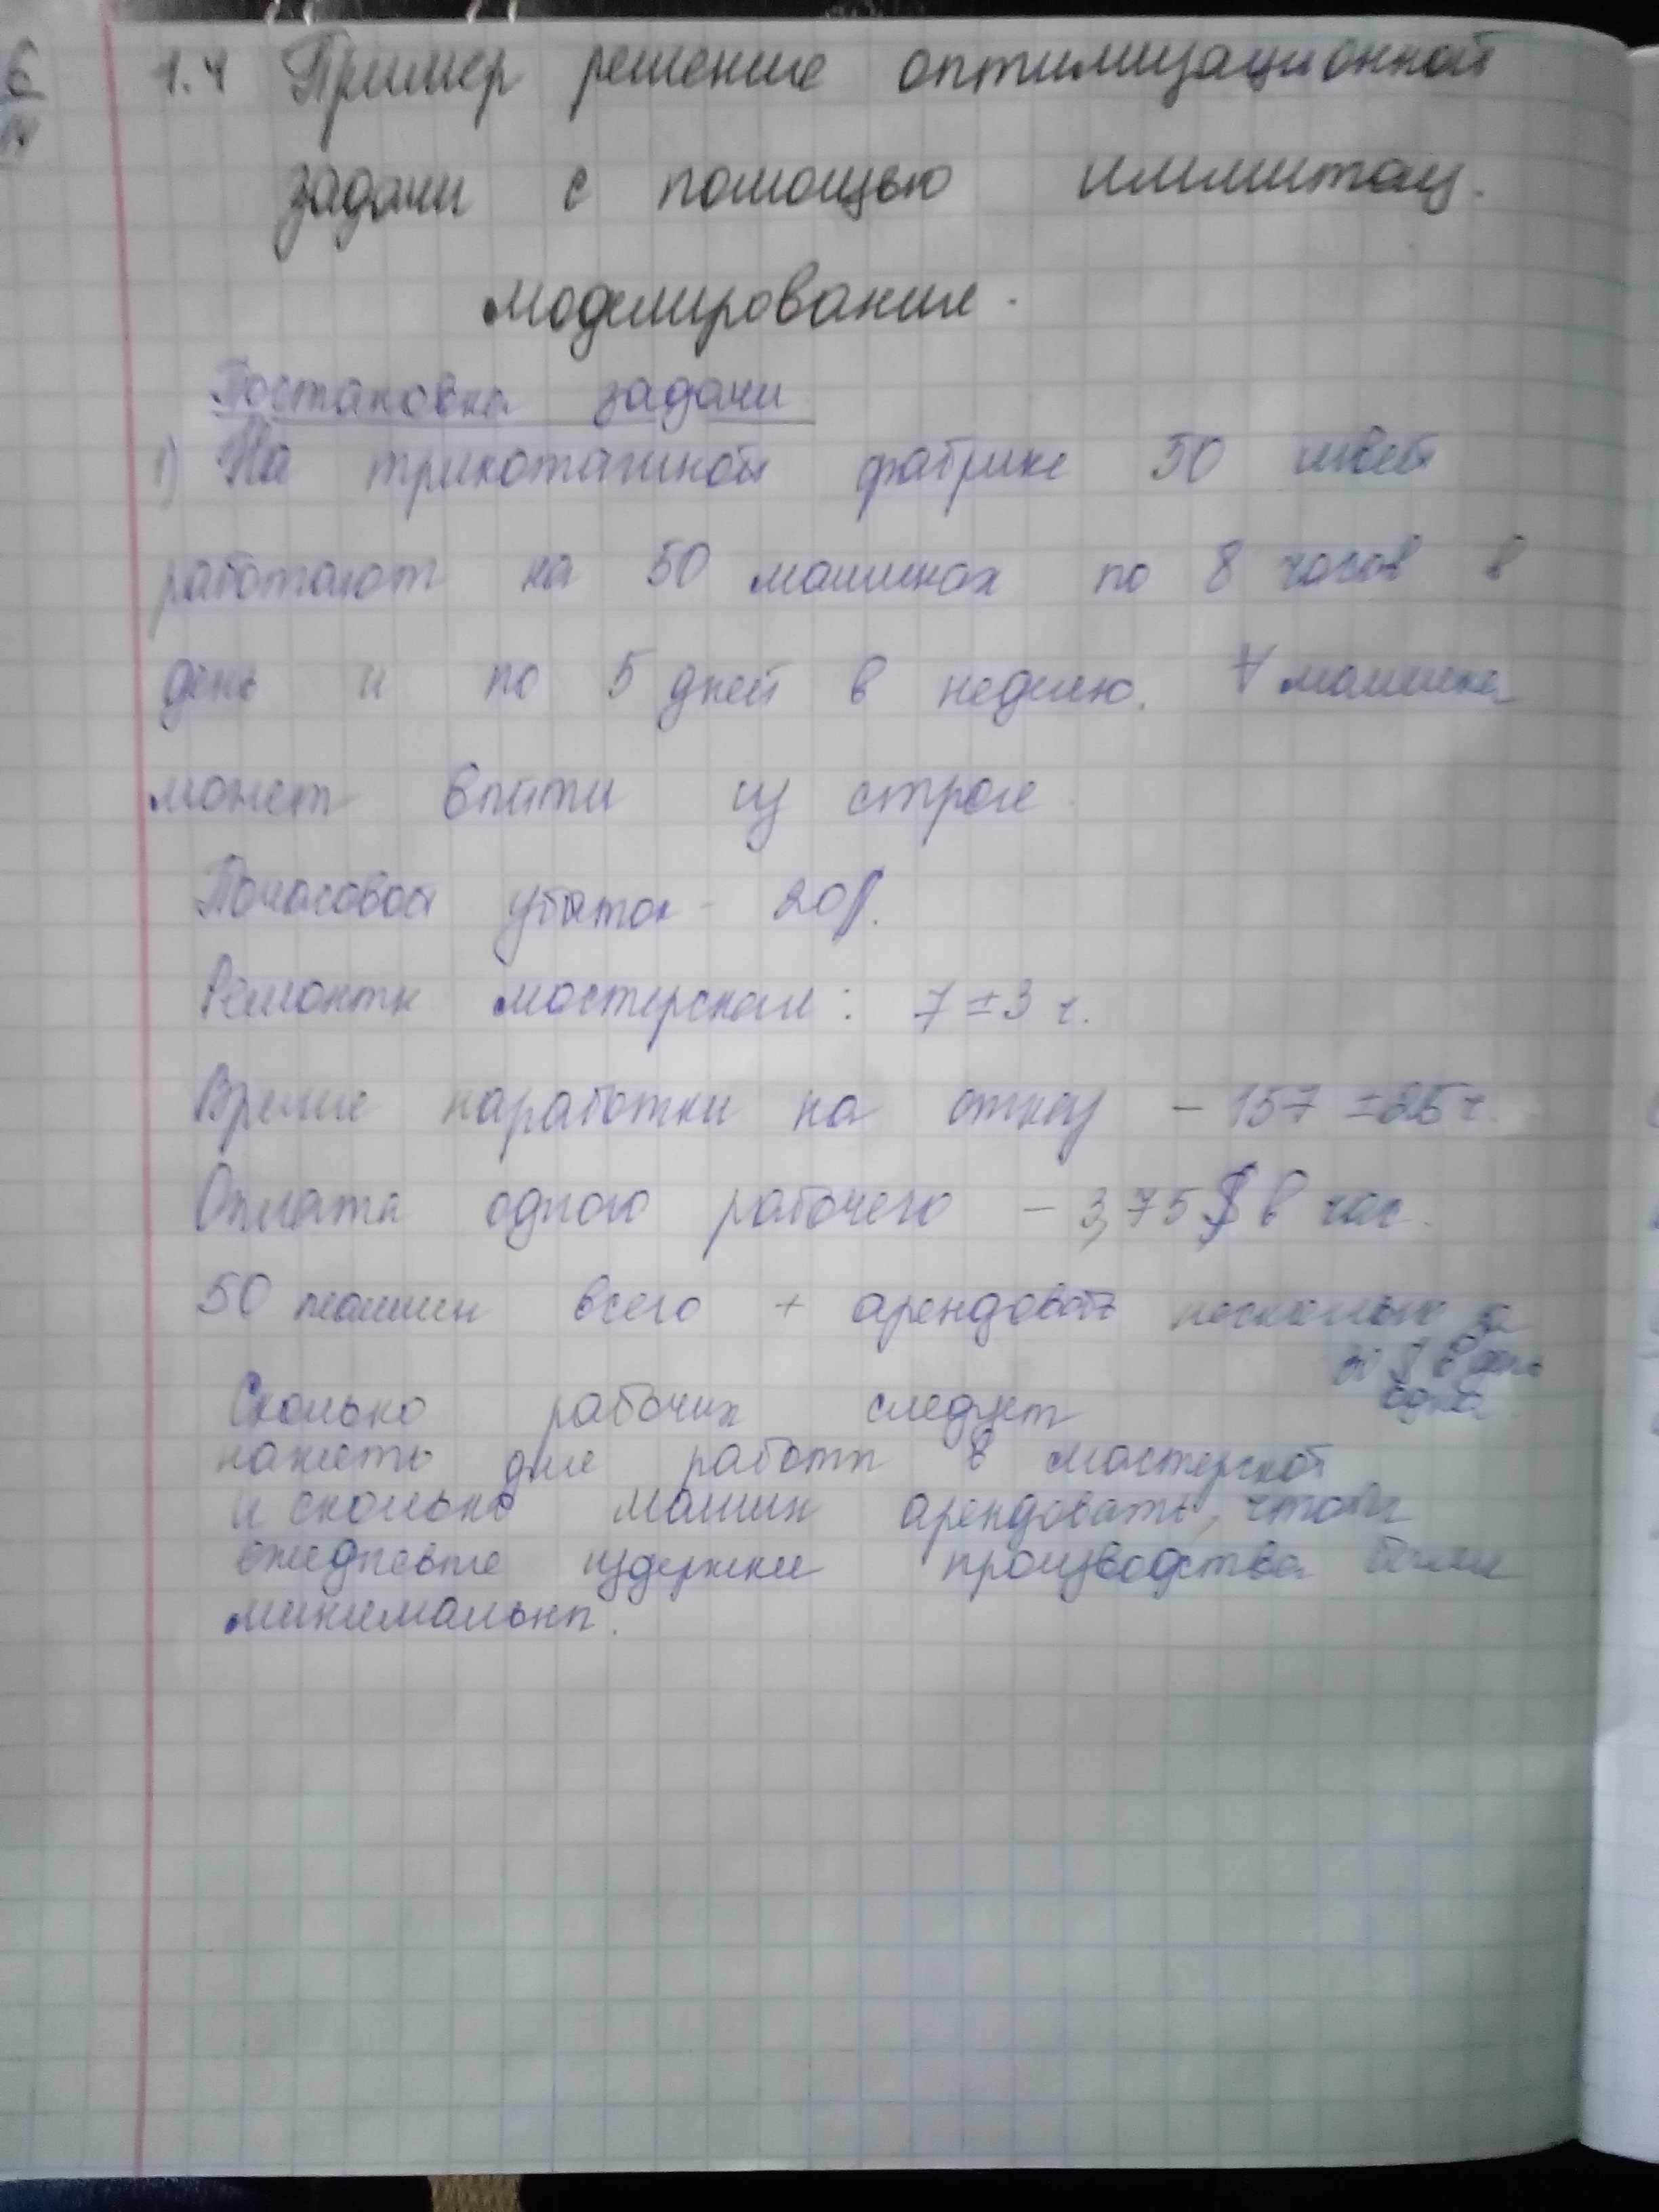 6
1.4 Пример решение оптимизационной
задачи с помощью иммитац.
моделирования.
Постановка задачи
1) На трикотажной фабрике 50 швей
работают на 50 машинах по 8 часов в
день и по 5 дней в неделю. ∀ машинка
может выйти из строя
Почасовой убыток - 20р.
Ремонтн. мастерская: 7 ± 3 ч.
Время наработки на отказ – 157 ± 25 ч.
Оплата одного рабочего – 3,75 $ в час.
50 машин всего + арендовать несколько за
30 $ в день
одна
Сколько рабочих следует
нанять для работы в мастерской
и сколько машин арендовать, чтобы
ежедневные издержки производства были
минимальны.